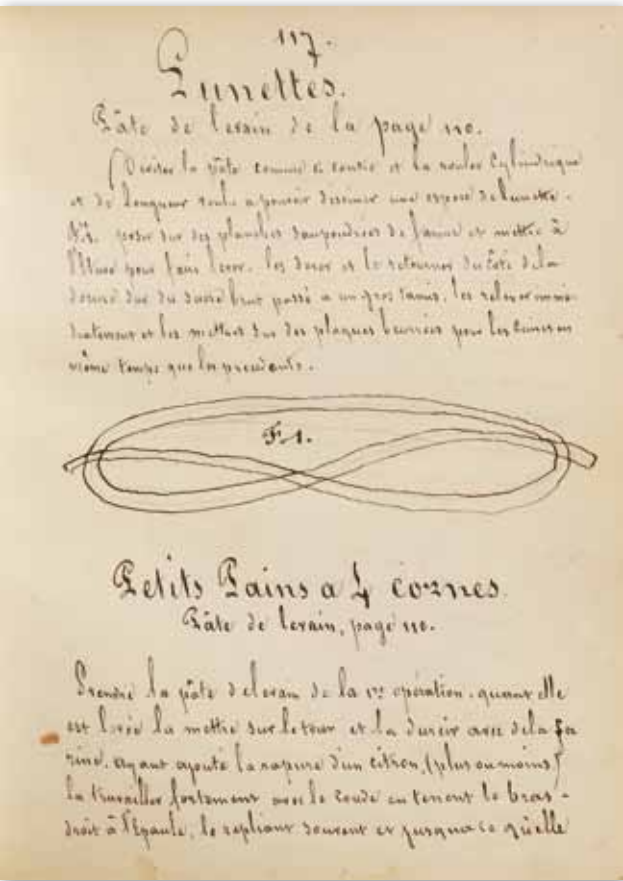 117.
Lunettes.
Pâte de levain de la page 110.
Diviser la pâte comme et la rouler Cylindrique
et de longueur voulu a pouvoir dessiner une espece de lunette.
F.1. poser sur des planches saupoudrées de farine et mettre à
l'Etuve pour faire lever. les dorer et le retourner du Coté de la
dorure sur du sucre brut passé a un gros tamis. les relever immé-
diatement et les mettre sur des plaques beurrées pour les Cuire en
même temps que les precedents.
F.1.
Petits Pains a 4 cornes.
Pâte de levain, page 110.
Prendre la pâte de levain de la 1re opération. quant elle
est levée la mettre sur le tour et la durcir avec de la fa
rine. ayant ajouté la rapure d'un citron, (plus ou moins)
la travailler fortement avec le Coude en tenant le bras-
droit à l'Epaule, le repliant souvent et jusqua ce qu'elle